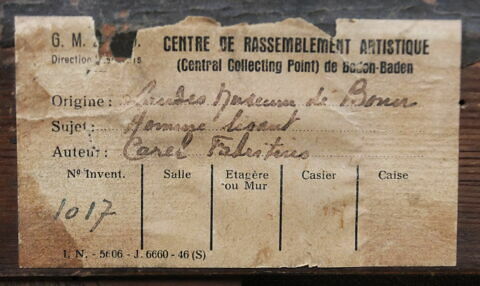 G. M. CENTRE DE RASSEMBLEMENT ARTISTIQUE
Direction (Central Collecting Point) de Baden-Baden
Origine: Landes Museum de Bonn
Sujet: Homme lisant
Auteur: Carel Fabritius
No Invent. Salle Etagère ou Mur Casier Caise
1017
I. N. - 5606 - J. 6660 - 46 (S)